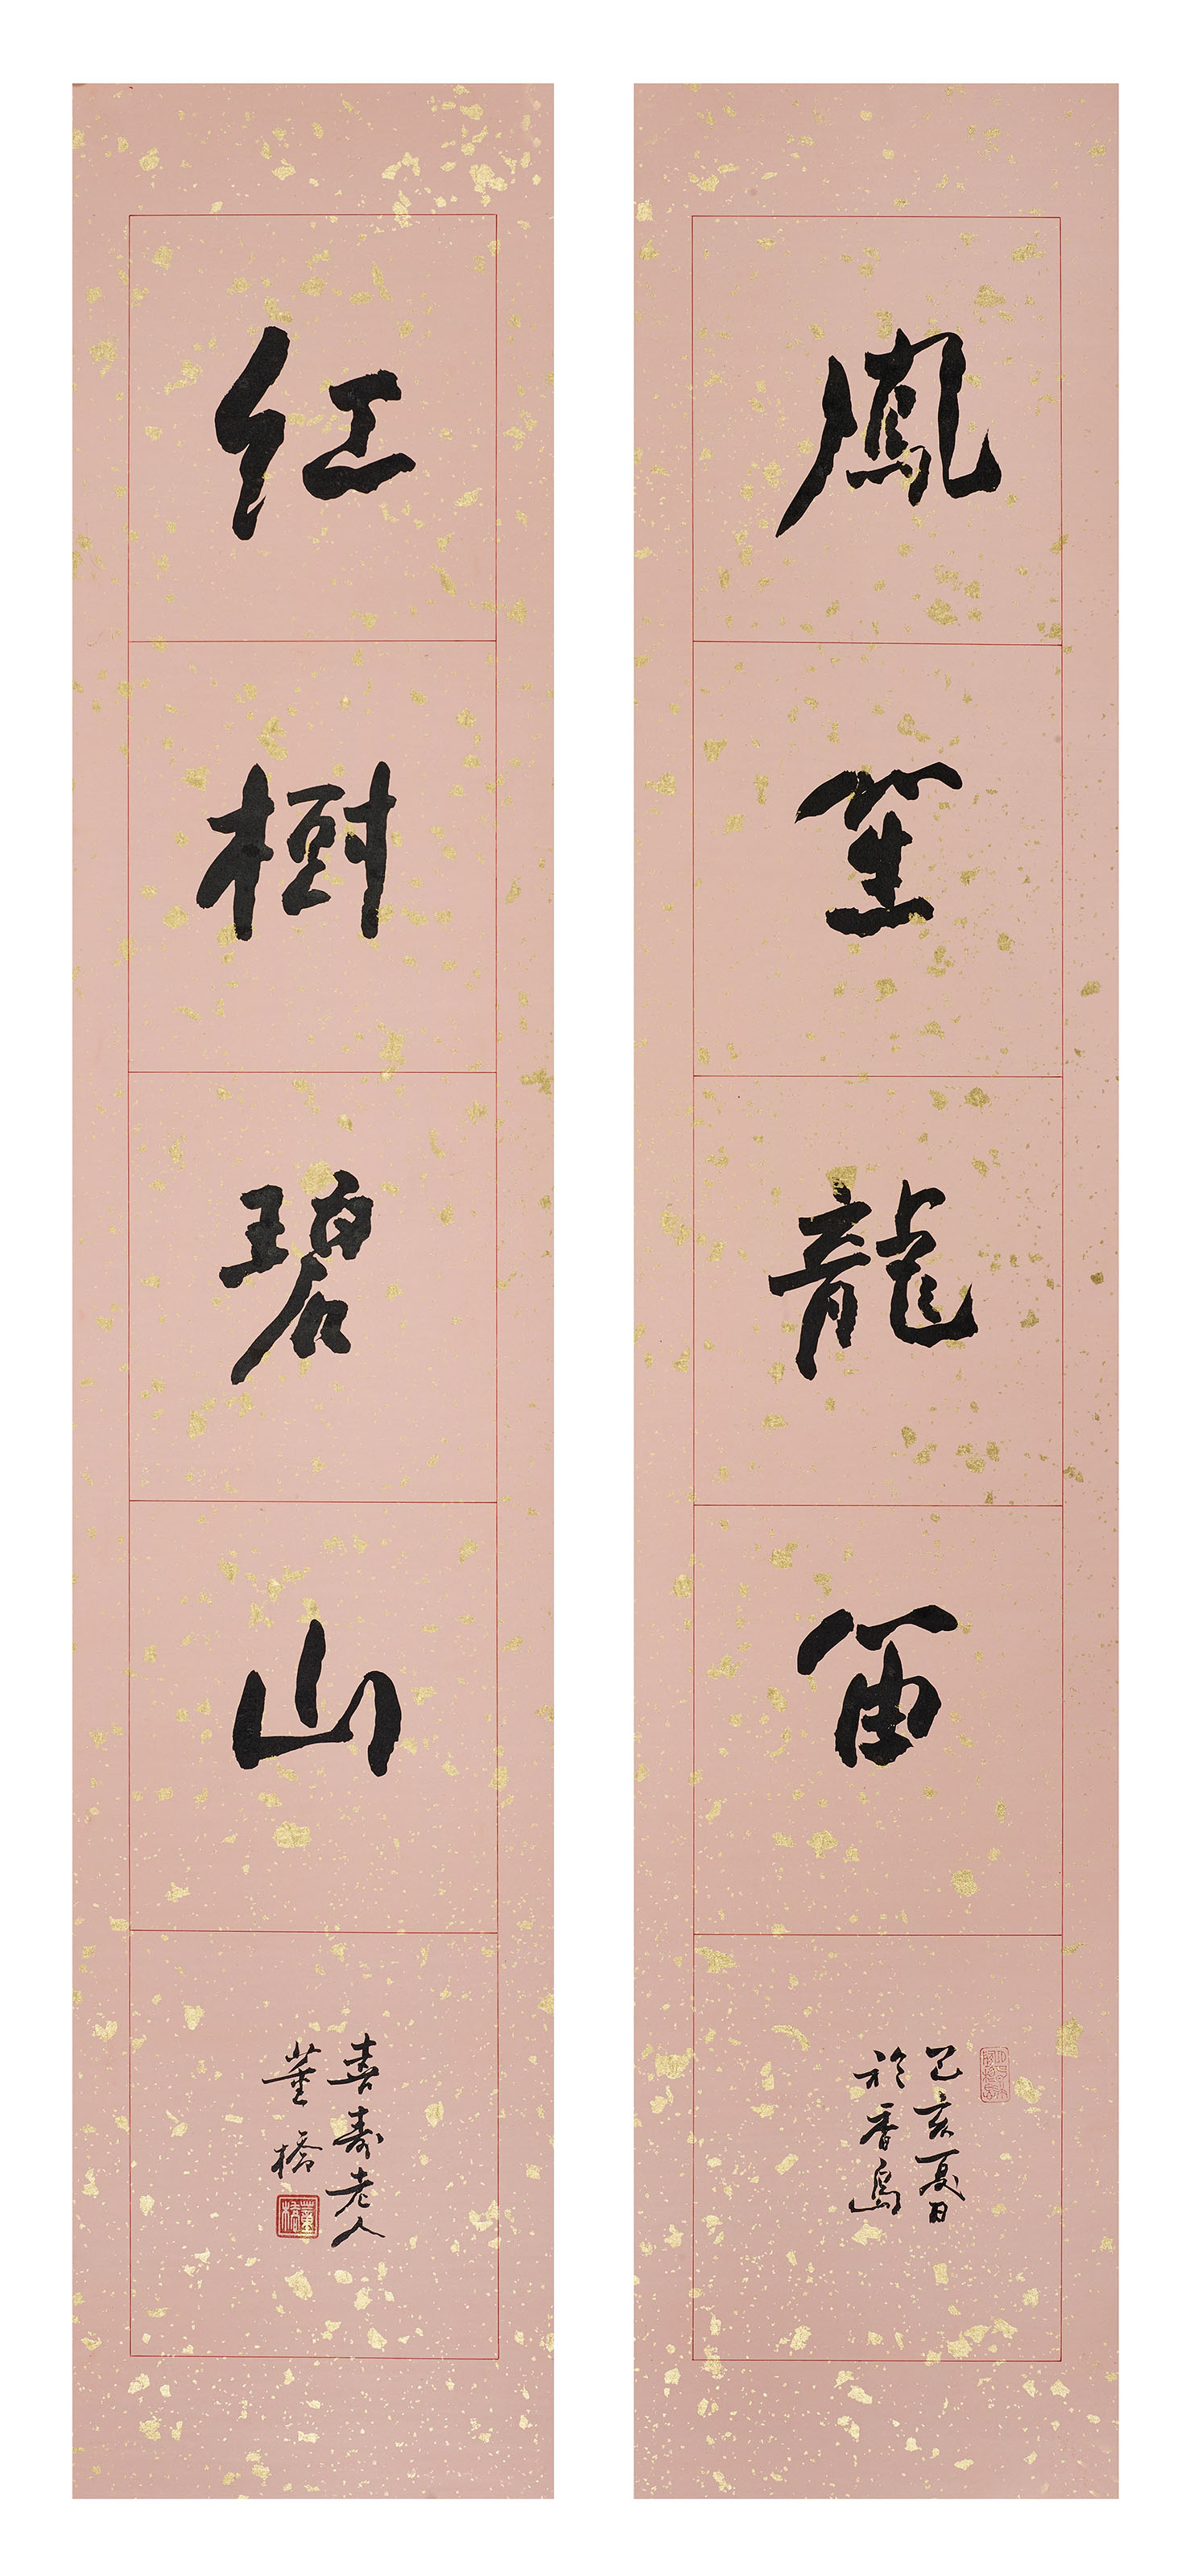 鳳笙龍笛
己亥夏日
於香島
紅樹碧山
喜壽老人
董橋
董橋